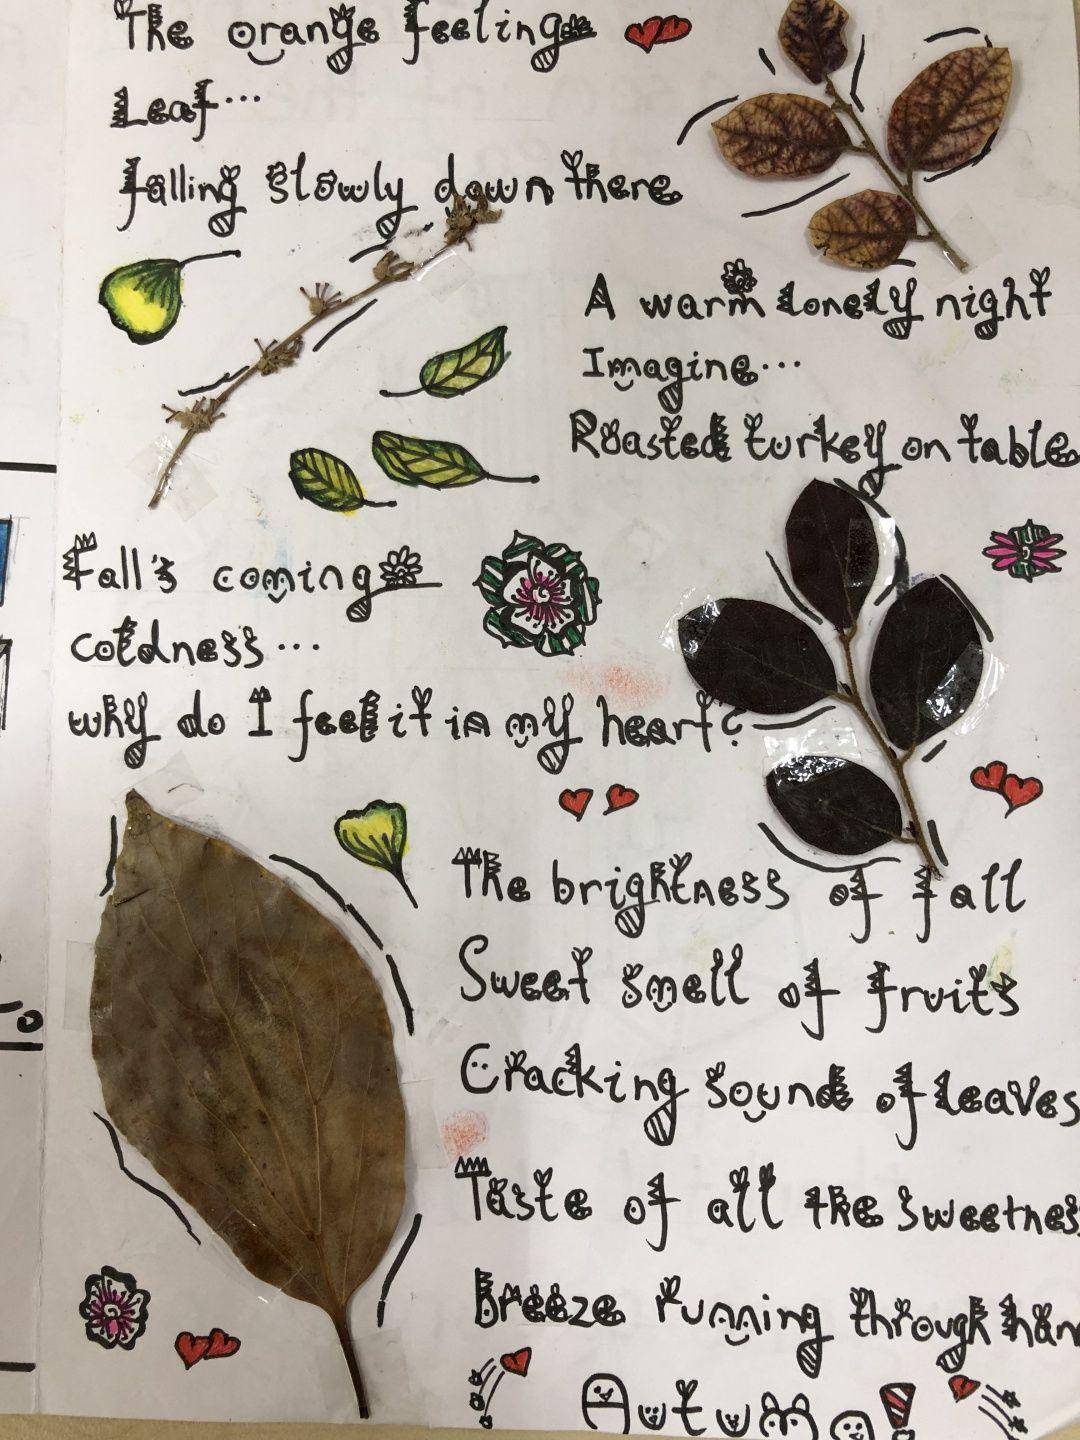 The orange feeling
Leaf...
falling slowly down there
A warm lonely night
Imagine...
Roasted turkey on table
Fall's coming
coldness...
why do I feel it in my heart?
The brightness of fall
Sweet smell of fruits
Cracking sound of leaves
Taste of all the sweetness
Breeze running through
Autumn!